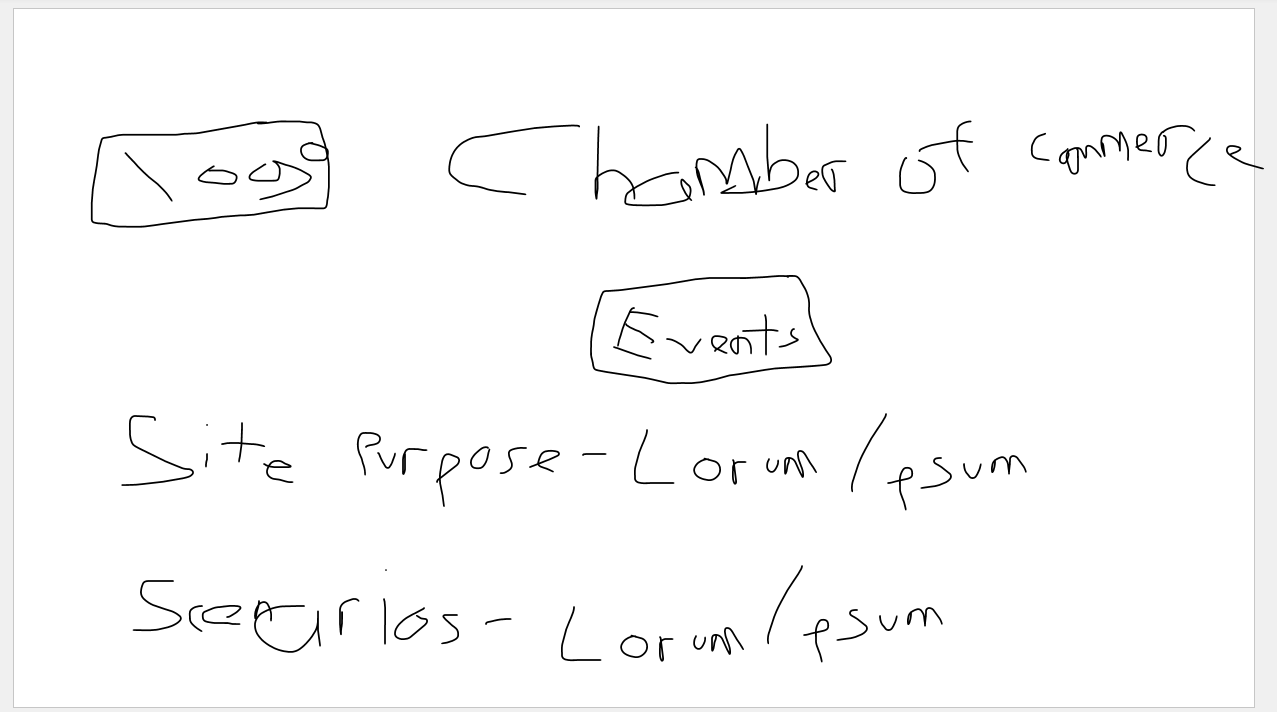 logo Chamber of commerce
Events
Site Purpose - Lorum / psum
Scenarios - Lorum / psum